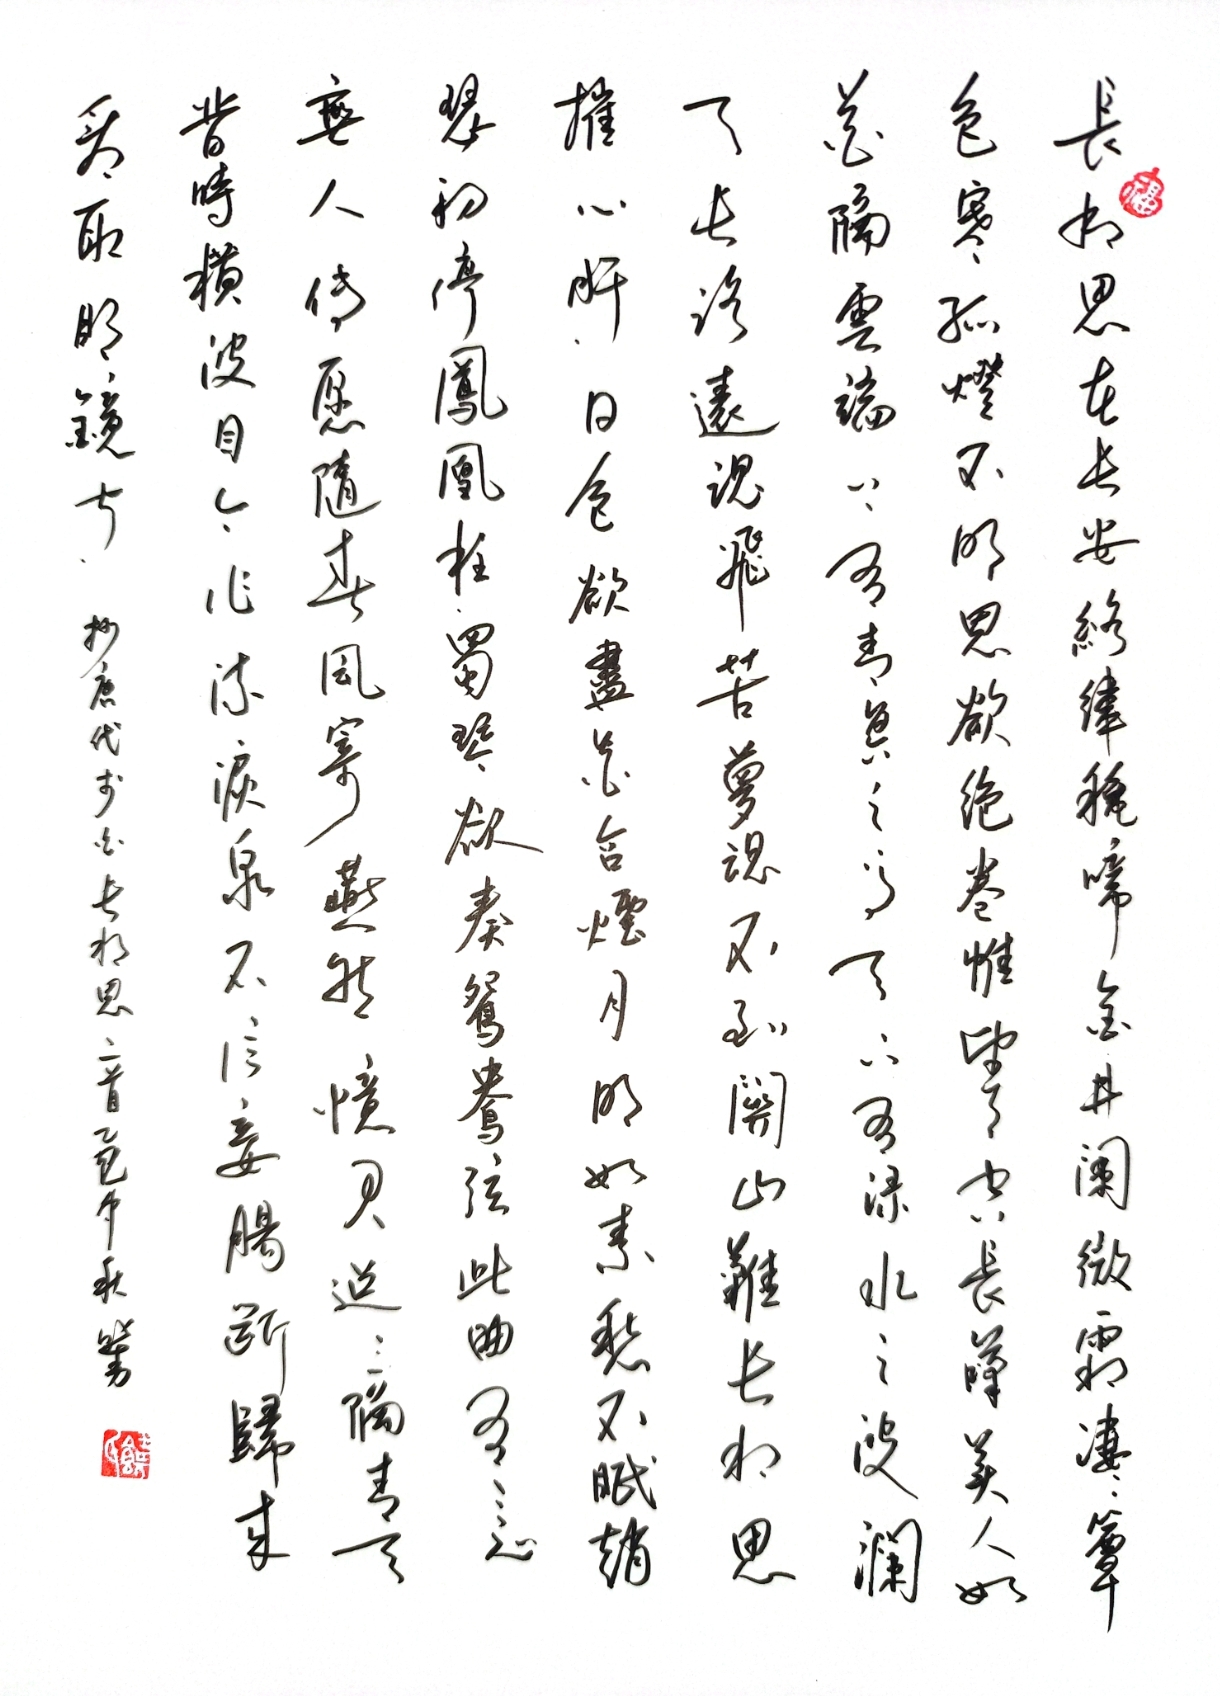 長相思在长安絡緯秋啼金井闌微霜凄凄簟
色寒孤燈不明思欲絶卷帷望月空長歎美人如
花隔雲端上有青冥之高天下有渌水之波瀾
天长路遠魂飛苦夢魂不到關山難长相思
摧心肝日色欲盡花含煙月明如素愁不眠趙
瑟初停鳳凰柱蜀琴欲奏鴛鴦弦此曲有意
無人傳愿隨春風寄燕然憶君迢迢隔青天
昔時横波目今作流淚泉不信妾腸斷歸来
看取明鏡前 抄唐代李白长相思二首乙巳年秋
福